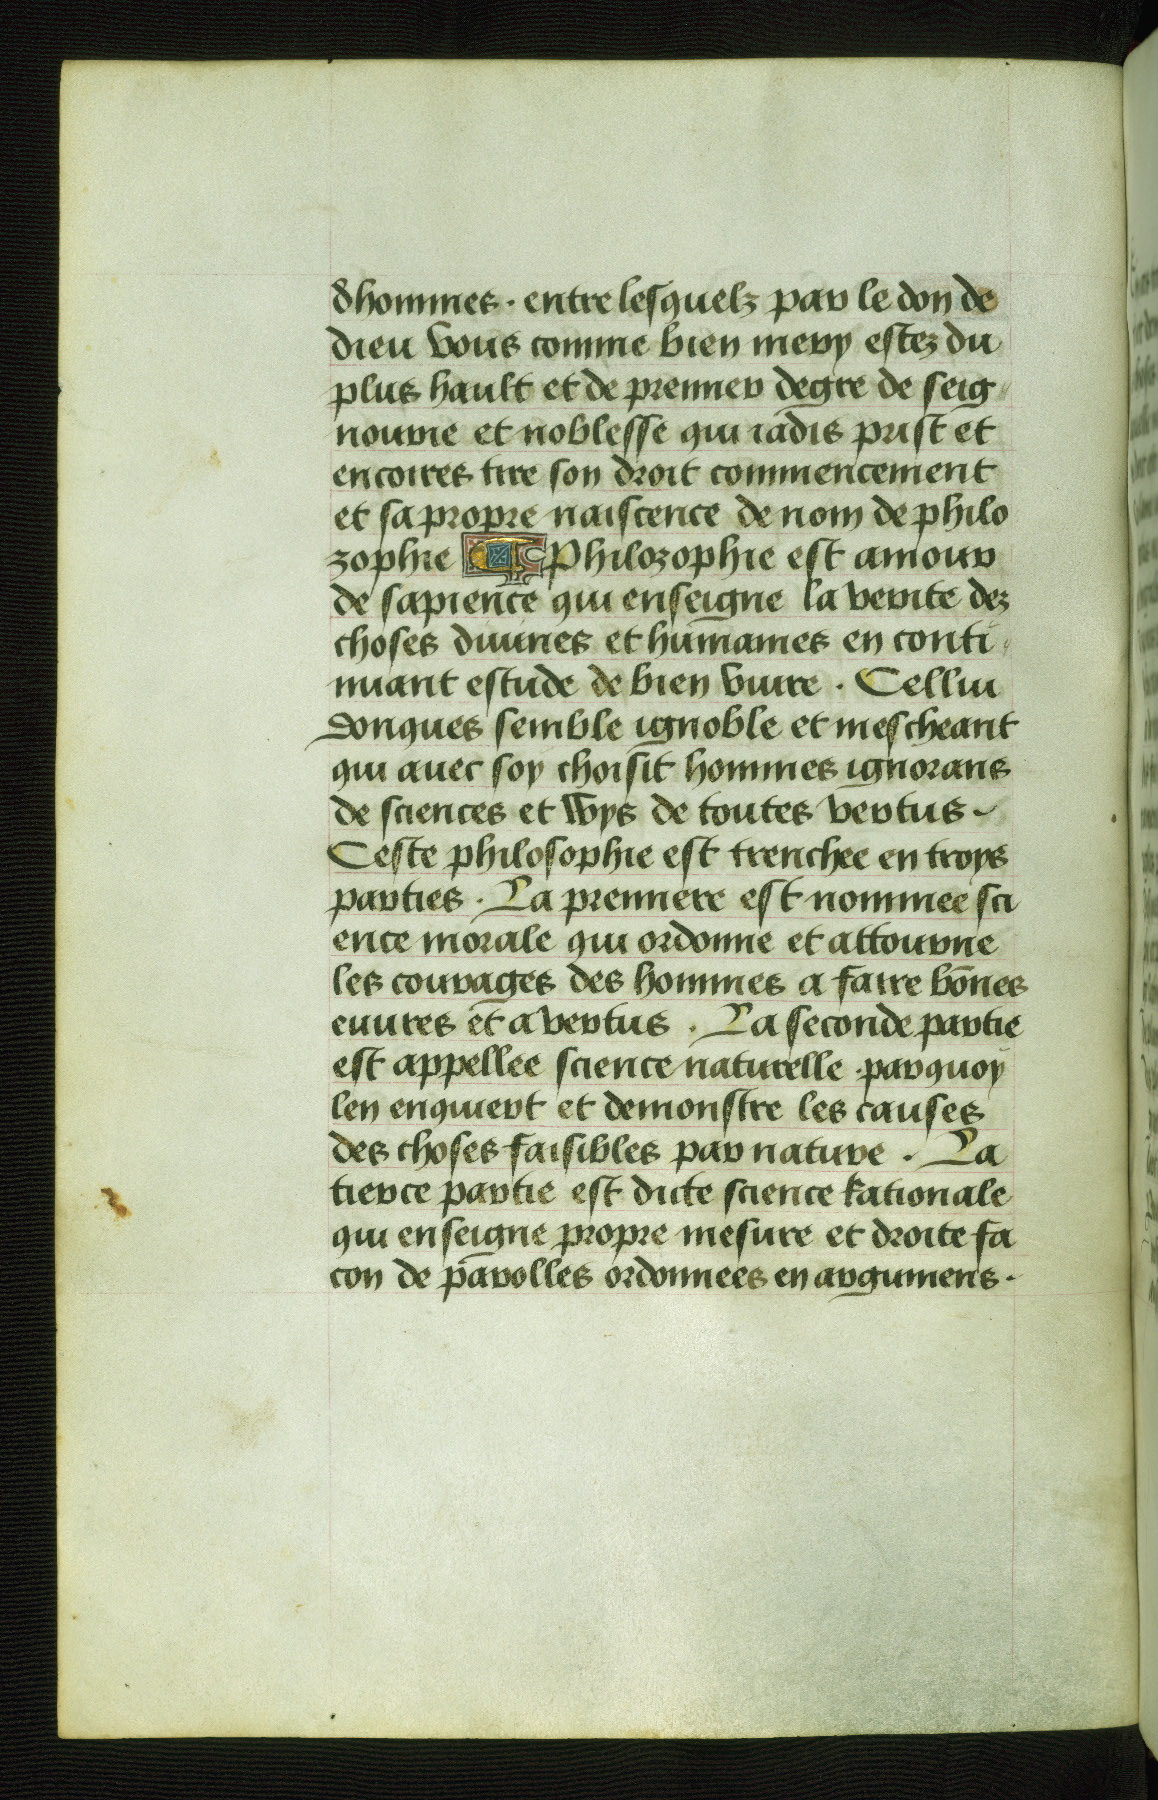 dhommes · entre lesquelz par le don de
dieu vous comme bien mery estez du
plus hault et de premier degre de seig
nourie et noblesse qui iadis prist et
encoires tire son droit commencement
et sa propre naiscence de nom de philo
zophie Philozophie est amour
de sapience qui enseigne la verite dez
choses diuines et humaines en conti
nuant estude de bien viure · Cellui
donques semble ignoble et mescheant
qui auec soy choisit hommes ignorans
de sciences et wys de toutes vertus ·
Ceste philosophie est trenchee en troys
parties · La premiere est nommee sci
ence morale qui ordonne et attourne
les courages des hommes a faire bōnes
euures et a vertus · La seconde partie
est appellee science naturelle · par quoy
len enquiert et demonstre les causes
des choses faisibles par nature · La
tierce partie est dicte science Rationale
qui enseigne propre mesure et droite fa
con de parolles ordonnees en argumens ·